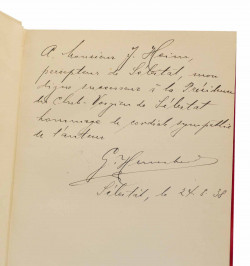 A Monsieur J. Heim,
percepteur de Sélestat, mon
digne successeur à la Présidence
du Club Vosgien de Sélestat
hommage de cordiale sympathie
de l'auteur
Sélestat, le 24.8.38